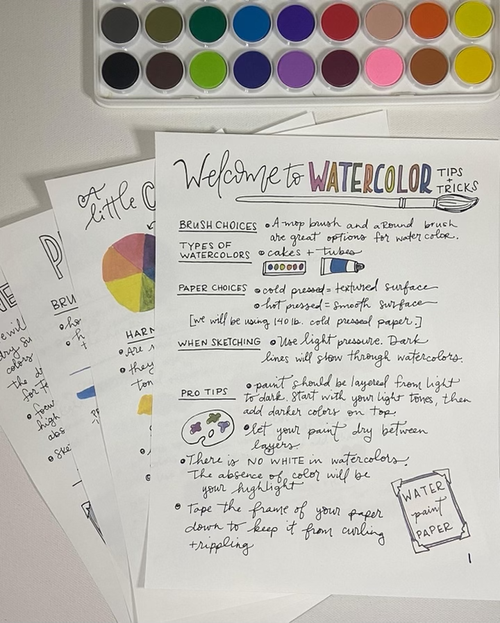 Welcome to WATERCOLOR TIPS + TRICKS
BRUSH CHOICES • A mop brush and a Round brush
are great options for watercolor.
TYPES OF WATERCOLORS • cakes + tubes
PAPER CHOICES • cold pressed = textured surface
• hot pressed = smooth surface
[we will be using 140 lb. cold pressed paper.]
WHEN SKETCHING • Use light pressure. Dark
lines will show through watercolors.
PRO TIPS • paint should be layered from light
to dark. Start with your light tones, then
add darker colors on top.
• let your paint dry between
layers.
• There is NO WHITE in watercolors.
The absence of color will be
your highlight
• Tape the frame of your paper
down to keep it from curling
+ rippling
WATER
paint
PAPER
1
A
little C
HARM
• Are
they
ton
P
BRU
• ho